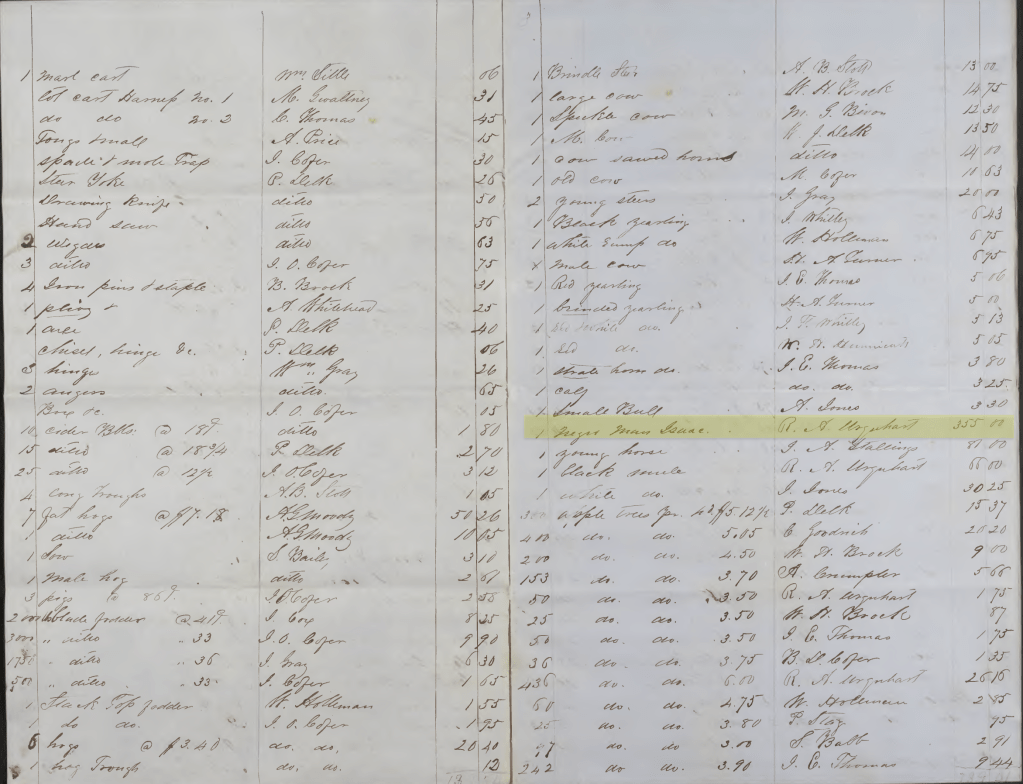 1 Marl cart Wm. Little 06
lot cart Harness No. 1 M. Gwaltney 31
do do no. 2 C. Thomas 45
Tongs & small A. Price 15
spade & mole Trap J. Cofer 30
Steer Yoke P. Delk 26
Drawing Knife ditto 50
Hand saw ditto 56
2 wedges ditto 63
3 ditto J. O. Cofer 75
4 Iron pins & staple B. Brock 31
1 A. Whitehead 25
1 axe P. Delk 40
chisel, hinge &c. P. Delk 06
3 hinge Wm. Gray 26
2 augers ditto 65
Box &c J. O. Cofer 05
10 cider Bbls. @ 18¢ ditto 1 80
15 ditto @ 18 3/4 P. Delk 2 70
25 ditto @ 12½ J. O Cofer 3 12
4 Troughs A. B. Stott 1 05
7 fat hogs @ $7.18 A G Moody 50 26
1 ditto A G Moody 10 05
1 Sow S. Baile 3 10
1 Male hog ditto 2 61
3 pigs 86¢ J. O Cofer 2 58
2000 blade fodder @ 41¢ J. Cox 8 25
3000 " ditto " 33 J. O. Cofer 9 90
1750 " ditto " 36 J. Gray 6 30
500 " ditto " 33 J. Cofer 1 65
1 Stack Top fodder W. Holleman 1 55
1 do do. J. O. Cofer 1 95
6 hogs @ $3.40 do. do. 20 40
1 hog Trough do. do. 12
1 Brindle Steer A. B. Stott 13 00
1 large cow W. H. Brock 14 75
1 Speckle cow M. G. 12 30
1 M. Cow W J. Delk 13 50
1 cow sawed horns ditto 14 00
1 old cow M. Cofer 10 63
2 young steers J. Gray 20 00
1 Black yearling J. Whitley 6 43
1 white rump do W. Holleman 6 75
male cow H. A Turner 6 95
1 Red yearling J. E. Thomas 5 06
1 brinded yearling H. A. Turner 5 00
1 do. J. F. Whitley 5 13
1 do. W. H. 5 05
1 horn do. J. E. Thomas 3 80
1 calf do. do. 3 25
1 Small Bull A. Jones 3 30
1 Negro Man Isaac. R. A. Urquhart 355 00
1 young horse J. A. Stallings 81 00
1 black mule R. A. Urquhart 66 00
1 white do. J. Jones 30 25
300 apple trees pr. 42 $5 12½ P. Delk 15 37
400 do. do. 5.05 C Goodrich 20 20
200 do. do. 4.50 W. H. Brock 9 00
153 do. do. 3.70 A. Crumpler 5 66
50 do. do. 3.50 R. A. Urquhart 1 75
25 do. do. 3.50 W. H. Brock 87
50 do. do. 3.50 J. E. Thomas 1 75
36 do. do. 3.75 B. D. Cofer 1 35
436 do. do. 6.00 R. A. Urquhart 26 16
60 do. do. 4.75 W. Holleman 2 85
25 do. do. 3.80 P. Stag 95
97 do. do. 3.00 S. Babb 2 91
242 do do. 3.90 J. E. Thomas 9 44